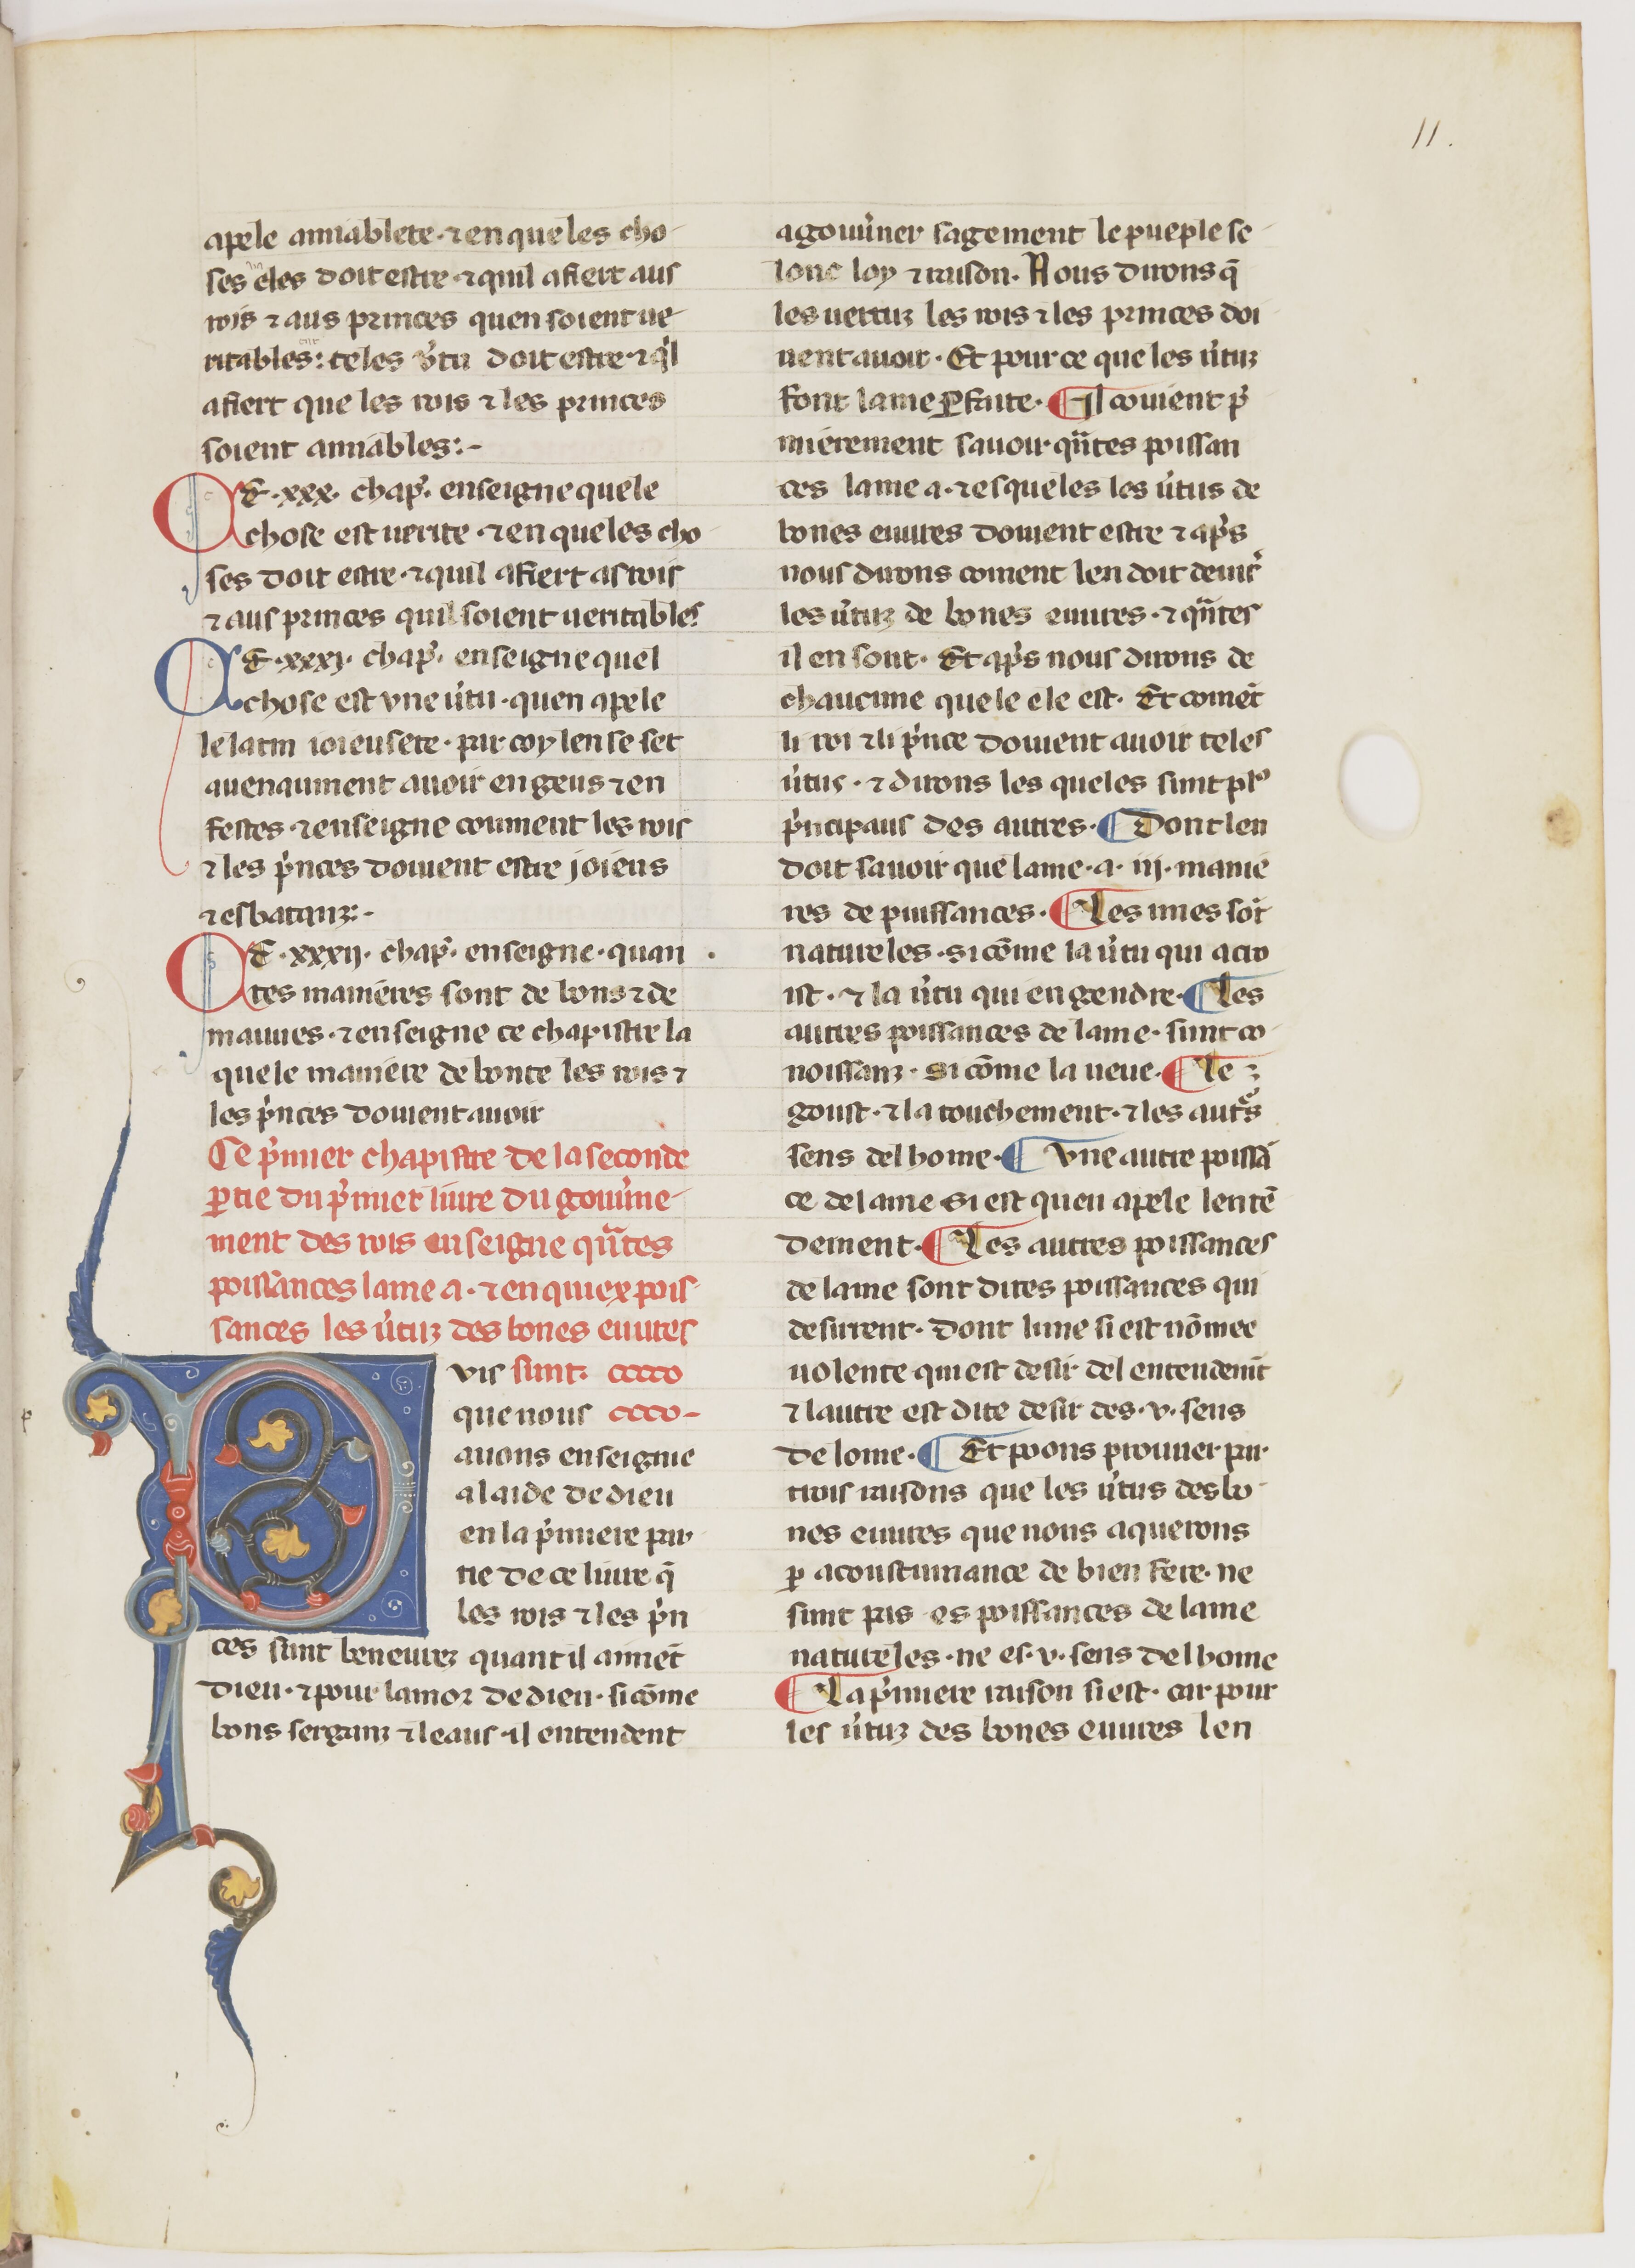 11.
apele amiablete · ⁊ en queles cho-
ses eles doit estre · ⁊ quil afiert aus
rois ⁊ aus princes quen soient ue-
ritables: teles v̓tu doit estre · ⁊ q̓l
afiert que les rois ⁊ les princes
soient amiables:-
OE · xxx · chap̓ · enseigne quele
chose est uerite · ⁊ en queles cho-
ses doit estre · ⁊ quil afiert as rois
⁊ aus princes quil soient ueritables
OE · xxxj · chap̓ · enseigne quel
chose est vne u̓tu · quen apele
le latin ioieusete · par coy len se set
auenaument auoir en geus ⁊ en
festes · ⁊ enseigne coument les rois
⁊ les p̓nces doiuent estre joieus
⁊ esbatanz:-
OE · xxxij · chap̓ · enseigne · quan
tes manieres sont de bons ⁊ de
mauues · ⁊ enseigne ce chapistre la
quele maniere de bonte les rois ⁊
les p̓nces doiuent auoir
Ce p̓mier chapistre de la seconde
ꝑtie du p̓mier liure du gouu̓ne-
ment des rois enseigne qu̅ates
poissances lame a · ⁊ en quiex pois-
sances les u̓tuz des bones euures
vis sunt. ccccco
que nous cccco-
auons enseignie
a laide de dieu
en la p̓miere par
tie de ce liure q̄
les rois ⁊ les p̓n
ces sunt beneurez quant il aimēt
dieu · ⁊ pour lamor de dieu · si cōme
bons serganz ⁊ leaus · il entendent
a gouu̓ner sagement le pueple se-
lonc loy ⁊ raison. Nous dirons q̄
les uertuz les rois ⁊ les princes doi
uent auoir · Et pour ce que les u̓tuz
font lame ꝑfaite · ¶ Il couient p̓
mierement sauoir · qu̅ates poissan
ces lame a · ⁊ esqueles les u̓tus de
bones euures doiuent estre ⁊ ap̓s
nous dirons coment len doit deuir̓
les u̓tuz de bones euures · ⁊ qu̅ates
il en sont · Et ap̓s nous dirons de
chaucune quele ele est · Et comēt
li roi ⁊ li p̓nce doiuent auoir teles
u̓tus · ⁊ dirons les queles sunt plꝰ
p̓ncipaus des autres · ¶ Dont len
doit sauoir que lame · a · iij · manie
res de puissances · ¶ Les unes sōt
natureles · si cōme la u̓tu qui acro
ist · ⁊ la u̓tu qui engendre · ¶ Les
autres poissances de lame · sunt co-
noissanz · si cōme la ueue · ¶ Le
goust · ⁊ latouchement · ⁊ les aut̓s
sens del home · ¶ Vne autre poissā
ce de lame si est quen apele lentē
dement · ¶ Les autres poissances
de lame sont dites poissances qui
desirent · Dont lune si est nōmee
uolente qui est desir del entendem̄t
⁊ lautre est dite desir des · v · sens
de lome · ¶ Et poons prouuer par
trois raisons que les u̓tus des bo-
nes euures que nous aquerons
ꝑ acoustumance de bien fere · ne
sunt pas es poissances de lame
natureles · ne es · v · sens del home
¶ La p̓miere raison si est · car pour
les u̓tuz des bones euures len